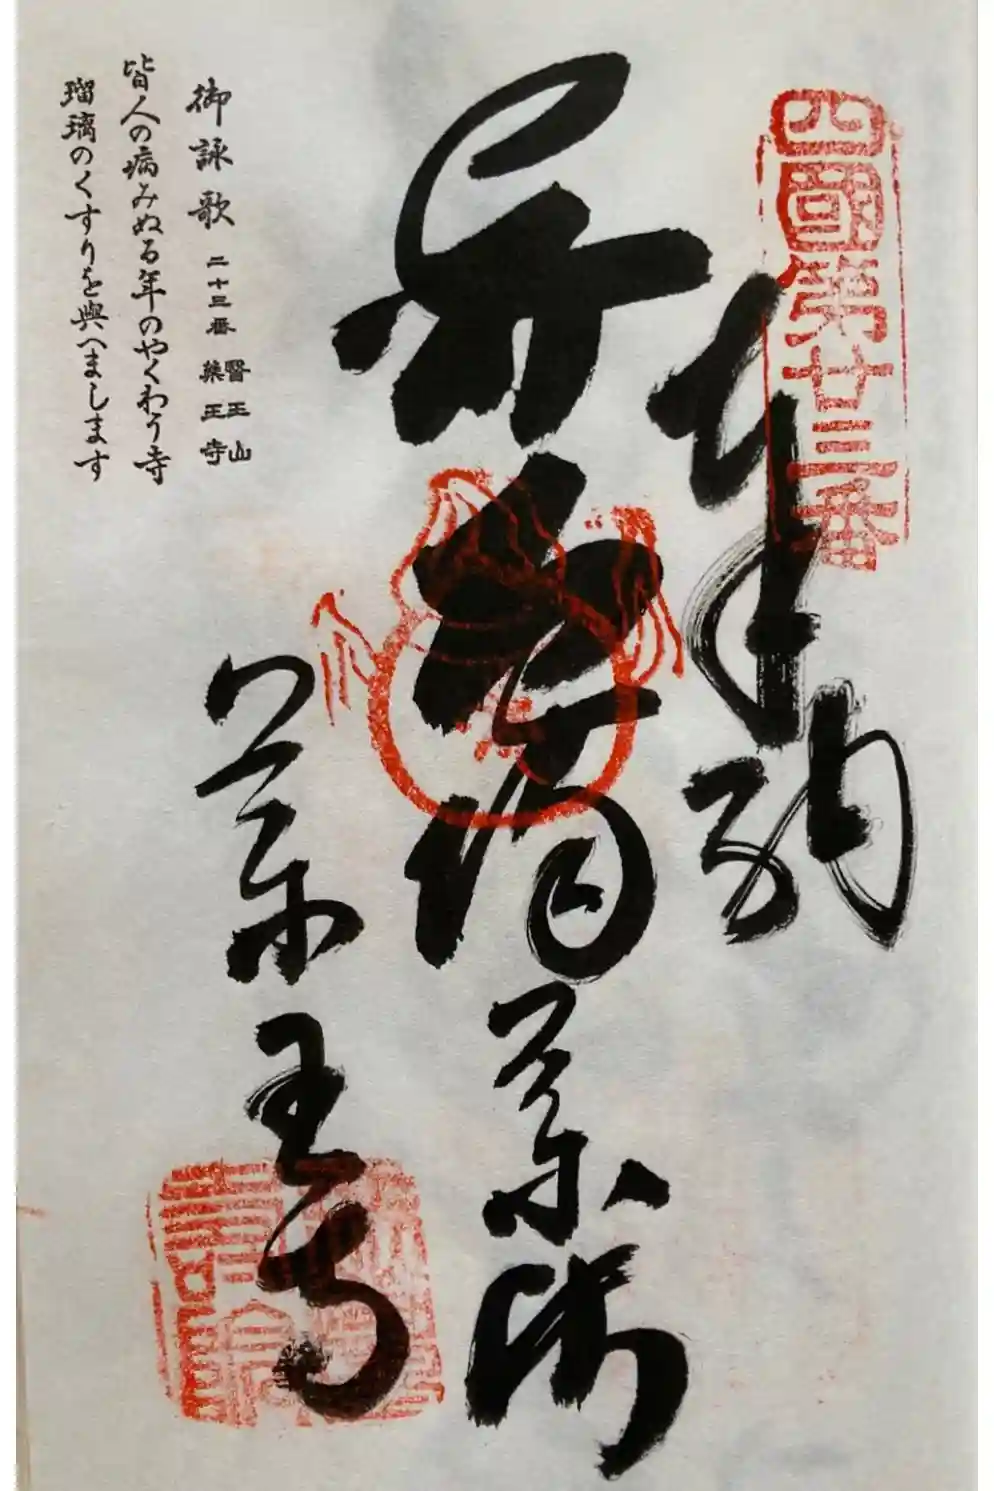 四國第廿三番
奉納
薬師
薬王寺
御詠歌 二十三番 醫王山 藥王寺
皆人の病みぬる年のやくわう寺
瑠璃のくすりを與へまします